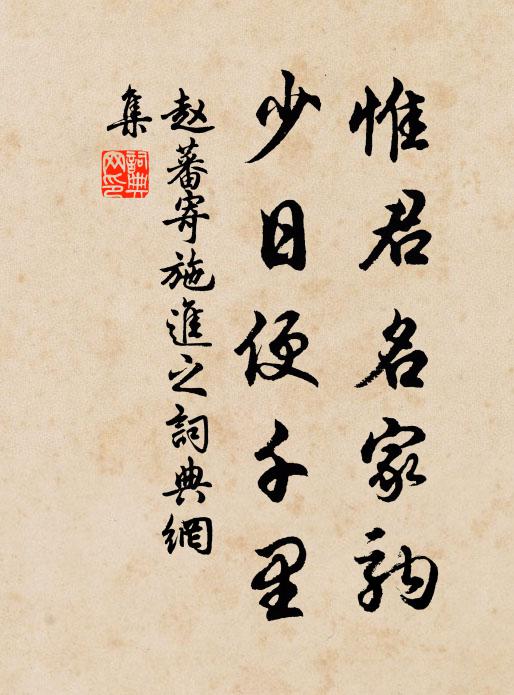 惟君名家駒
少日便千里
趙蕃寄施進之詞典網
集
詞典
网印